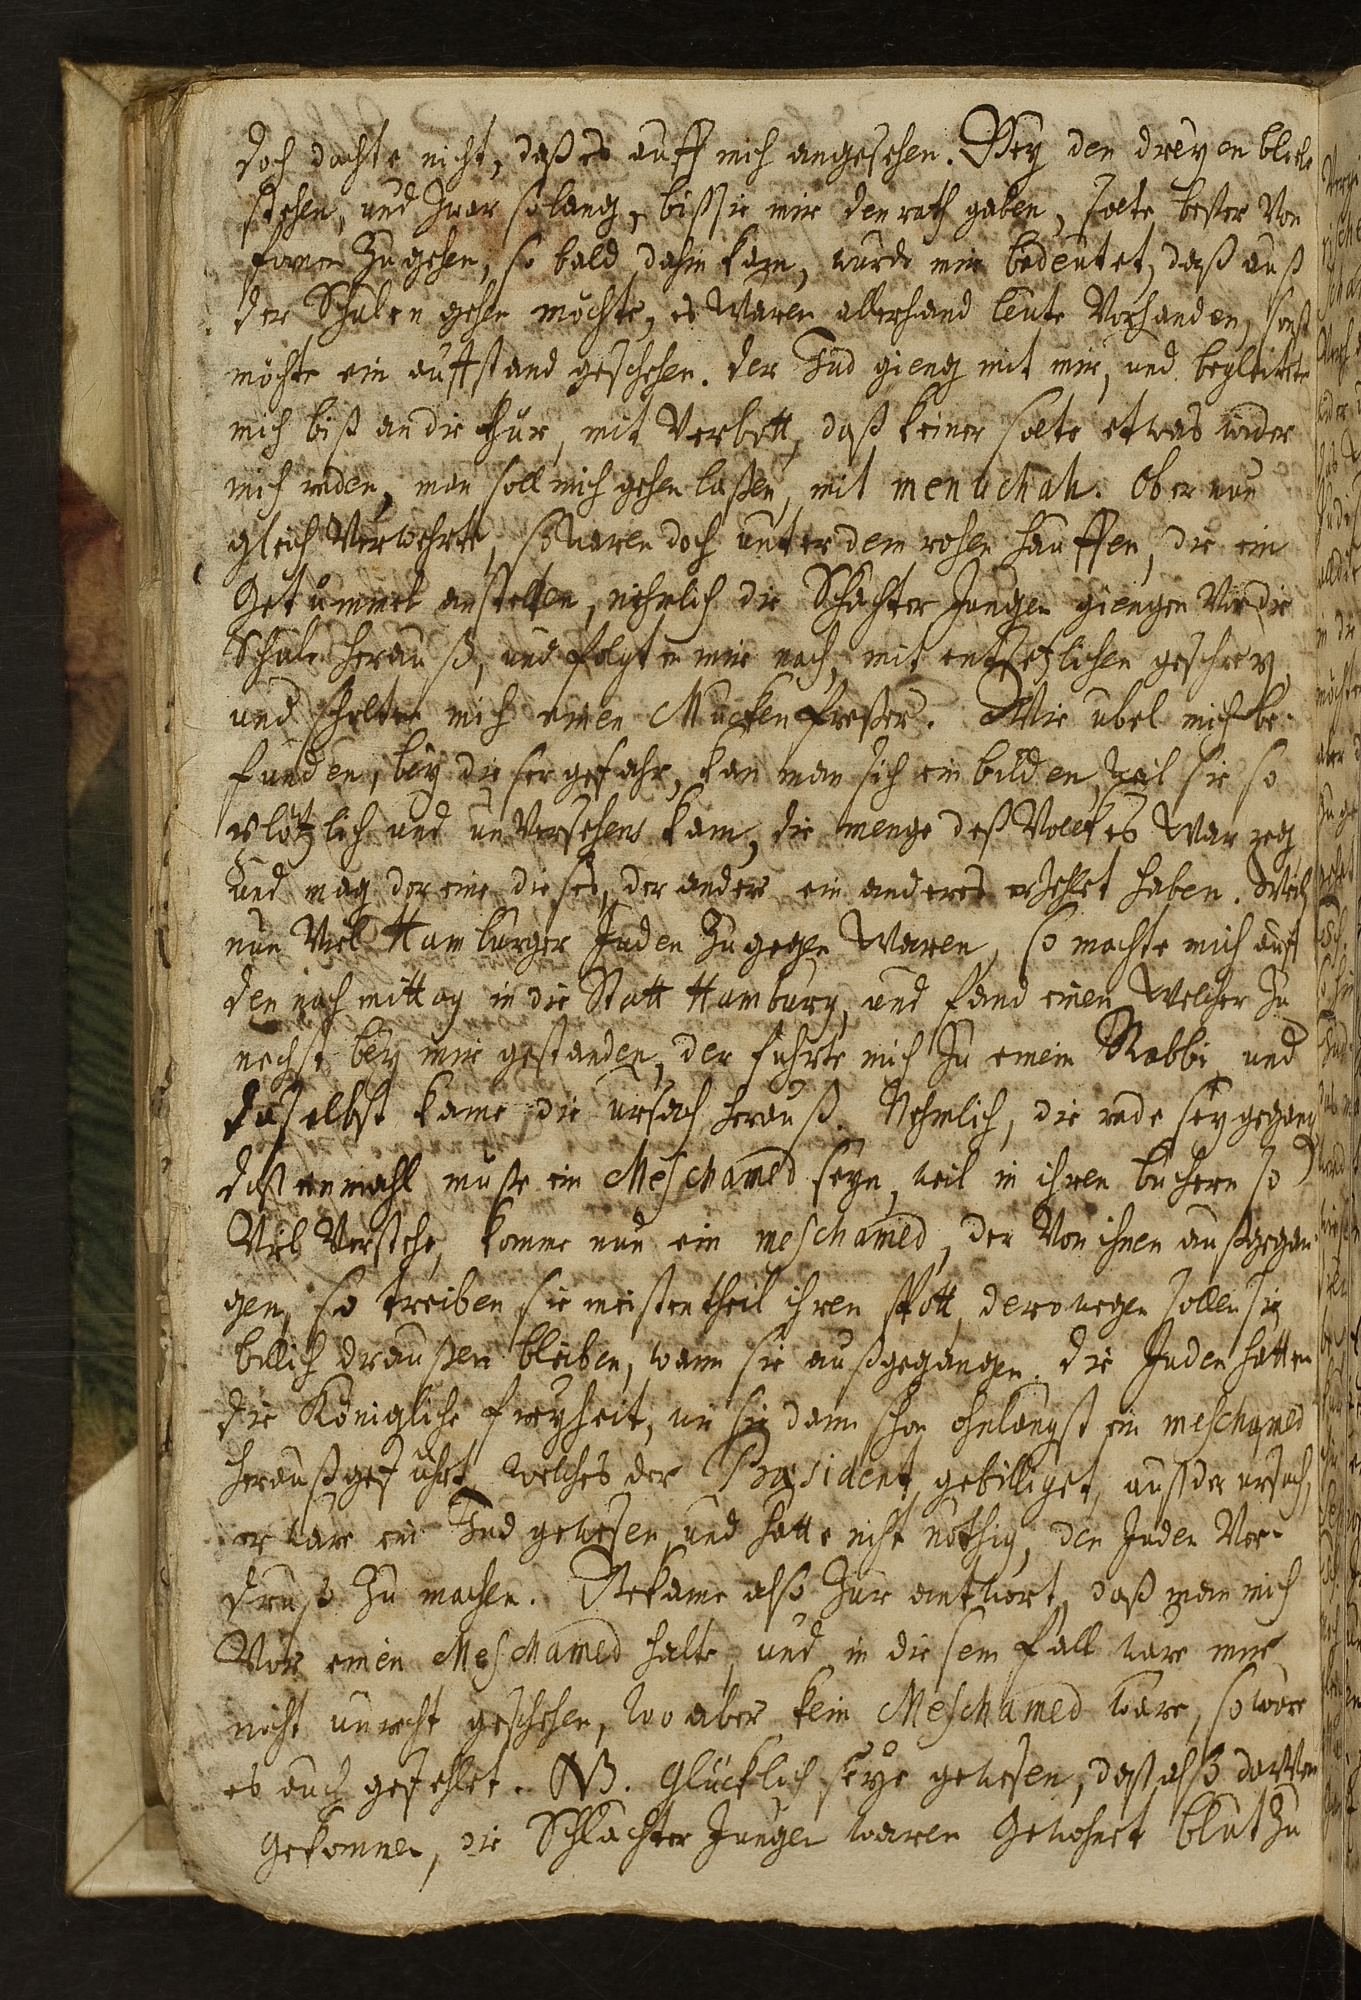 doch dachte nicht, daß es auff mich angesehen. Bey den dreyen bliebe
stehen, und zwar solang, biß sie mir den rath gaben, solte beßer von
fornen zu gehen, so bald dahin kam, wurde mir bedeutet, daß auß
der Schulen gehen möchte, es waren allerhand leute vorhanden, sonst
möchte ein auffstand geschehen. der Jud gieng mit mir, und begleitete
mich biß an die thür, mit verbott, daß keiner solte etwas wider
mich reden, man soll mich gehen laßen, mit menuchah. Ob er nun
gleich verwehrte, so waren doch unter dem rohen hauffen, die ein
Getümmel anstelten, nehmlich die Schachter Jungen giengen vor die
Schule herauß, und folgten mir nach, mit entsetzlichen geschrey,
und scholten mich einen Muckenfreßer. Wie ubel mich be-
funden, bey dieser gefahr, kan man sich einbilden, weil sie so
plötzlich und unversehens kam, die menge deß Volckes war
und mag der eine dieses, der ander ein anderes erzehlet haben. Weil
nun viel Hamburger Juden zugegen waren, so machte mich auff
den nachmittag in die Statt Hamburg, und fand einen welcher zu
nechst bey mir gestanden, der führte mich zu einem Rabbi und
daselbst kame die ursach herauß. Nehmlich, die rede sey gegang
daß einmahl muste ein Meschamed seyn, weil in ihren büchern so
viel verstehe, komme nun ein meschamed, der von ihnen außgegan-
gen, so treiben sie meistentheil ihren spott, derowegen sollen sie
billich draußen bleiben, wann sie außgegangen. Die Juden hatten
die Königliche freyheit, wie sie dann schon ohnlängst ein meschamed
heraußgeführt, welches der Præsident gebilliget, auß der ursach,
er ware ein Jud gewesen, und hatte nicht nöthig, den Juden Ver-
druß zu machen. Bekame also zur antwort, daß man mich
Vor einen Meschamed halte, und in diesem fall ware mir
nicht unrecht geschehen, wo aber kein Meschamed ware, so wäre
es auch gefehlet. NB. Glücklich seye gewesen, daß alß darvon
gekommen, die Schlachter Jungen waren gewohnet blut zu